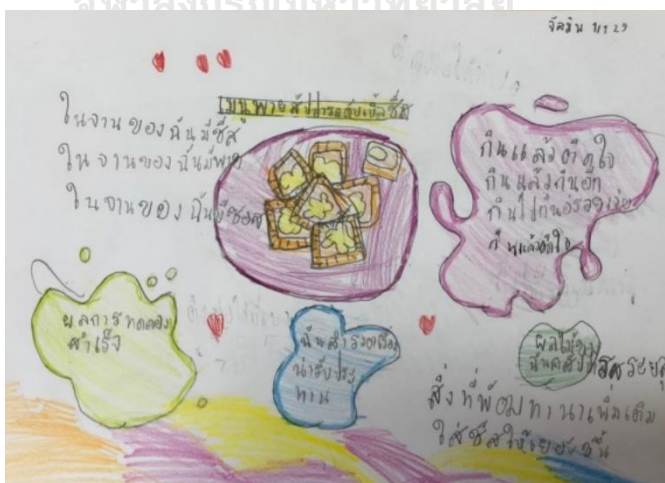 จุฬาลงกรณ์มหาวิทยาลัย
เมนูพายสับปะรดดับเบิ้ลชีส
ในจานของฉันมีชีส
ในจานของฉันมีพาย
ในจานของฉันมีซอส
กินแล้วติดใจ
กินแล้วกินอีก
กินไปกินอร่อยเลย
กินแล้วติดใจ
ผลการทดลอง
สำเร็จ
ฉันสำรวจเรื่อง
น่ารับประ
ทาน
ผลไม้ของ
ฉันคือสับปะรด
สิ่งที่พ้อมทานาเพิ่มเติม
ใส่ชีสให้เยอะขึ้น